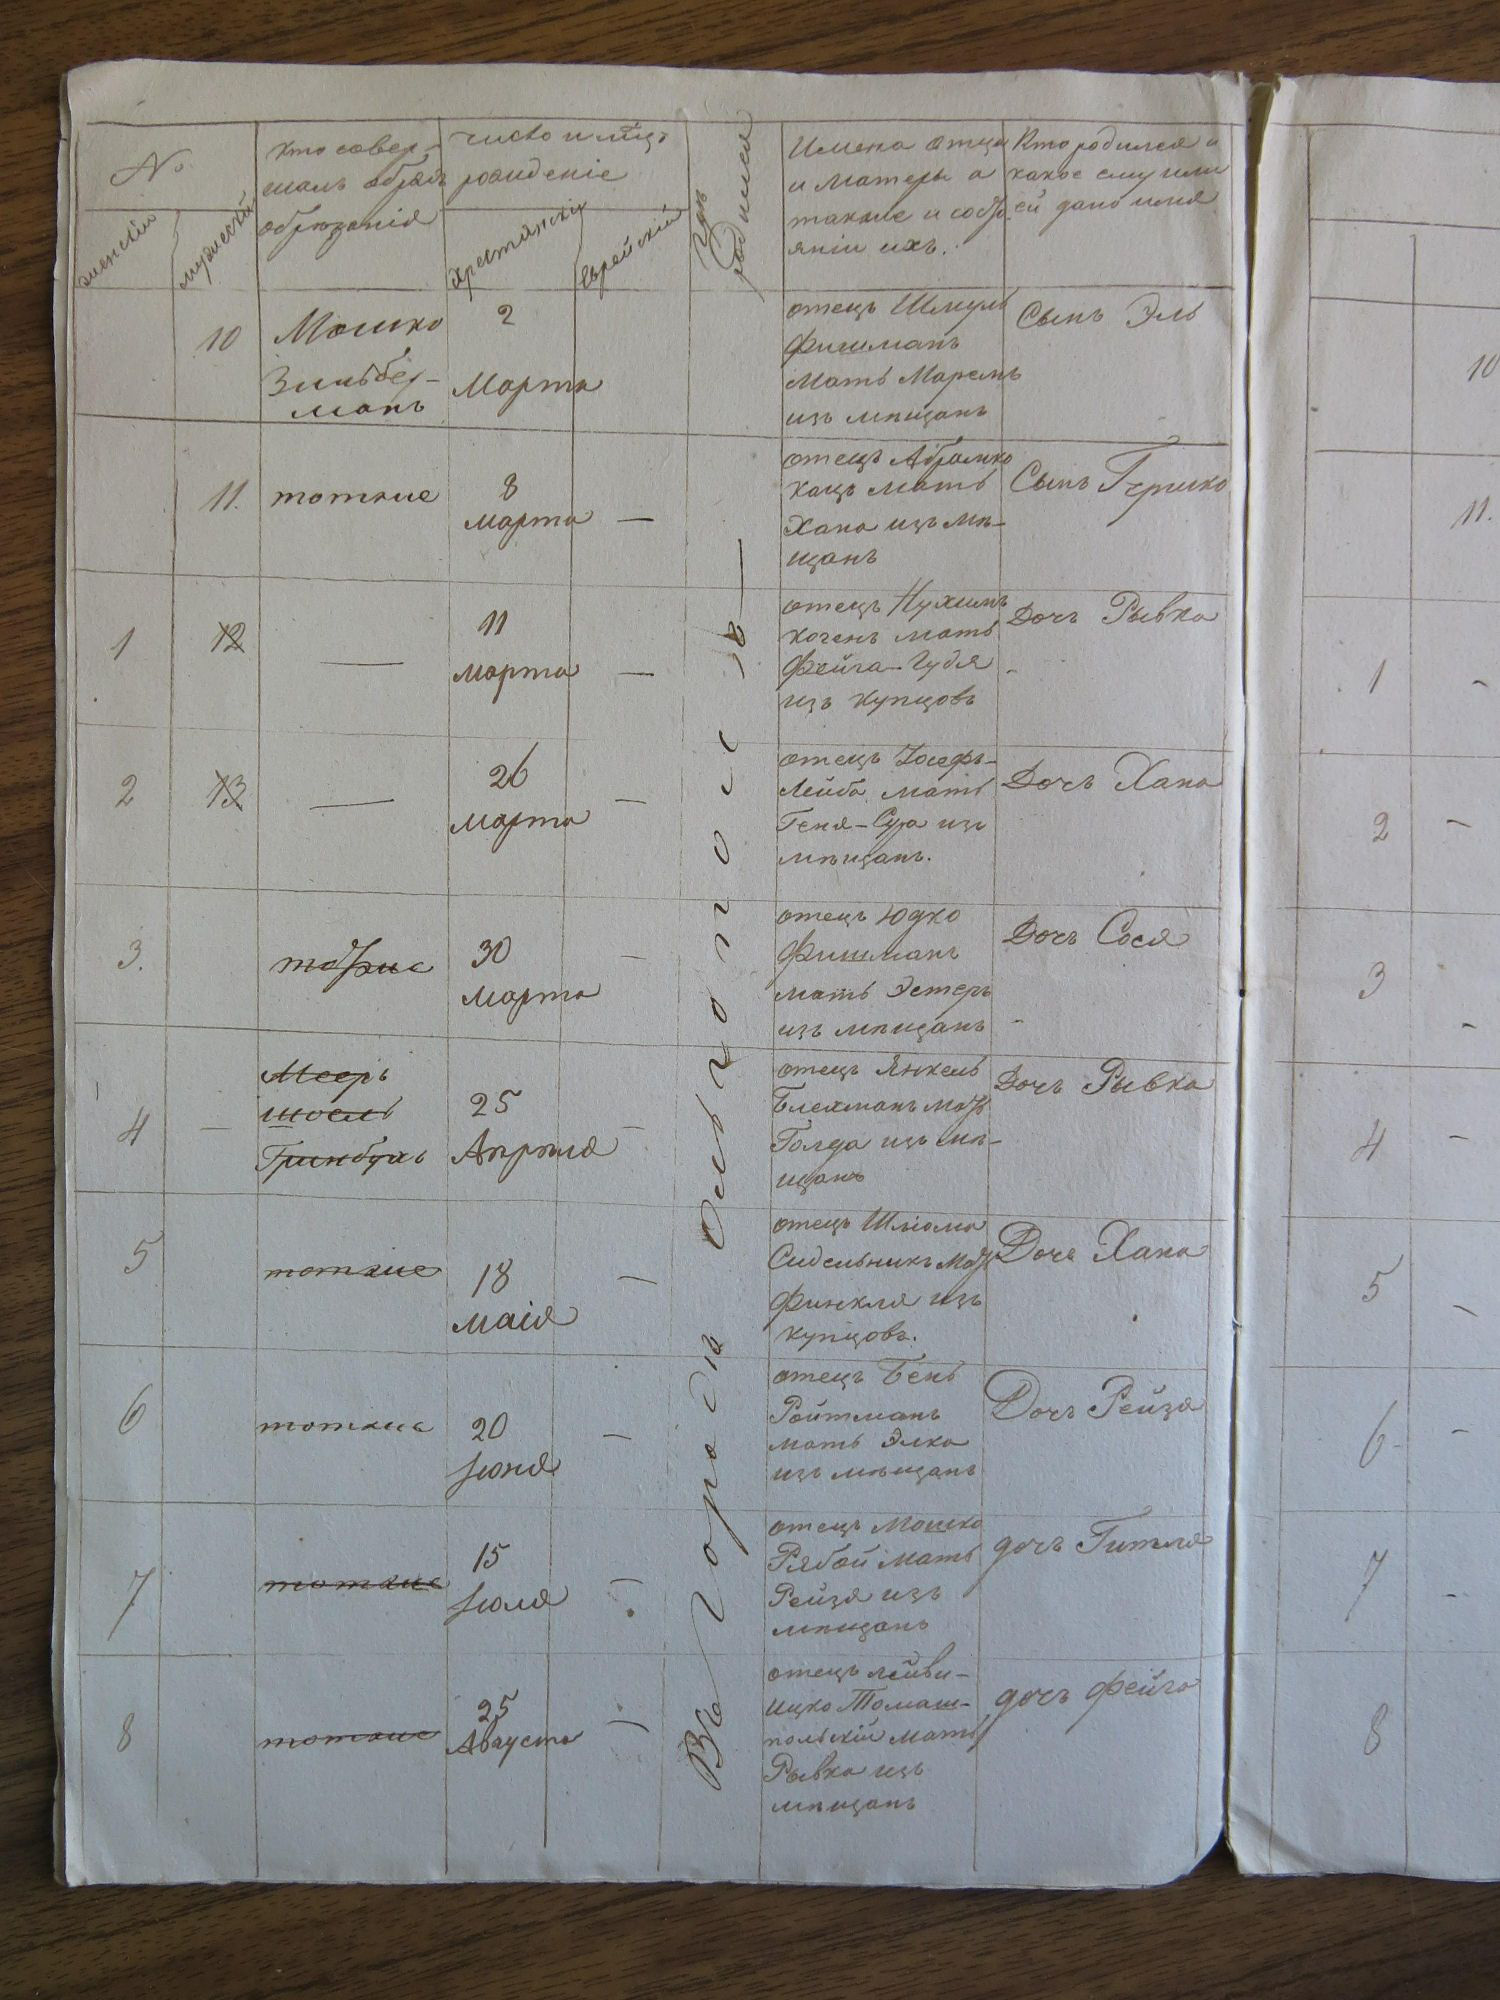 №
женскій
мужескій
кто совер-
шалъ обрядъ
обрѣзанія
число и мѣсяцъ
рожденіе
Христіянскій
Еврейскій
Гдѣ
родился
Имена отца
и матеры а
также и состо
яніи ихъ.
Кто родился и
какое ему или
ей дано имя
10
Мошко
Зильбер-
манъ
2
Марта
отецъ Шмуль
Фишманъ
Мать Маремъ
изъ мѣщанъ
Сынъ Эль
10
11.
тотже
8
марта —
отецъ Абрамко
Кацъ мать
Хана изъ мѣ-
щанъ
Сынъ Гершко
11.
1
12
—
11
марта —
отецъ Нухимъ
Когенъ мать
Фейга-Гудя
изъ купцовъ
Дочъ Рывка
1 -
2
13
—
26
марта —
отецъ Іосефъ-
Лейба мать
Геня-Сура изъ
мѣщанъ.
Дочъ Хана
2 -
3.
тотже
30 -
марта
отецъ Юдко
Фишманъ
мать Эстеръ
изъ мѣщанъ
Дочъ Сося
3 -
4 -
Мееръ
Шоель
25
Апрѣля -
отецъ Янкель
Блехманъ мать
Голда изъ мѣ-
щанъ
Дочъ Рывка
4 -
5
тотже
18 -
маія
отецъ Шліома
Сидельникъ мать
Финкля изъ
купцовъ.
Дочъ Хана
5 -
6
тотже
20 -
Іюня
отецъ Бень
Ройтманъ
мать Элка
изъ мѣщанъ
Дочъ Рейзя
6 -
7
тотже
15 -
Іюля
отецъ Мошко
Рябой мать
Рейзя изъ
мѣщанъ
дочъ Гитля
7 -
8
тотже
25
Августа -
отецъ Лейви-
Ицко Томаш-
польскій мать
Рывка изъ
мѣщанъ
дочъ Фейга
8
Въ городѣ Ольгополѣ —